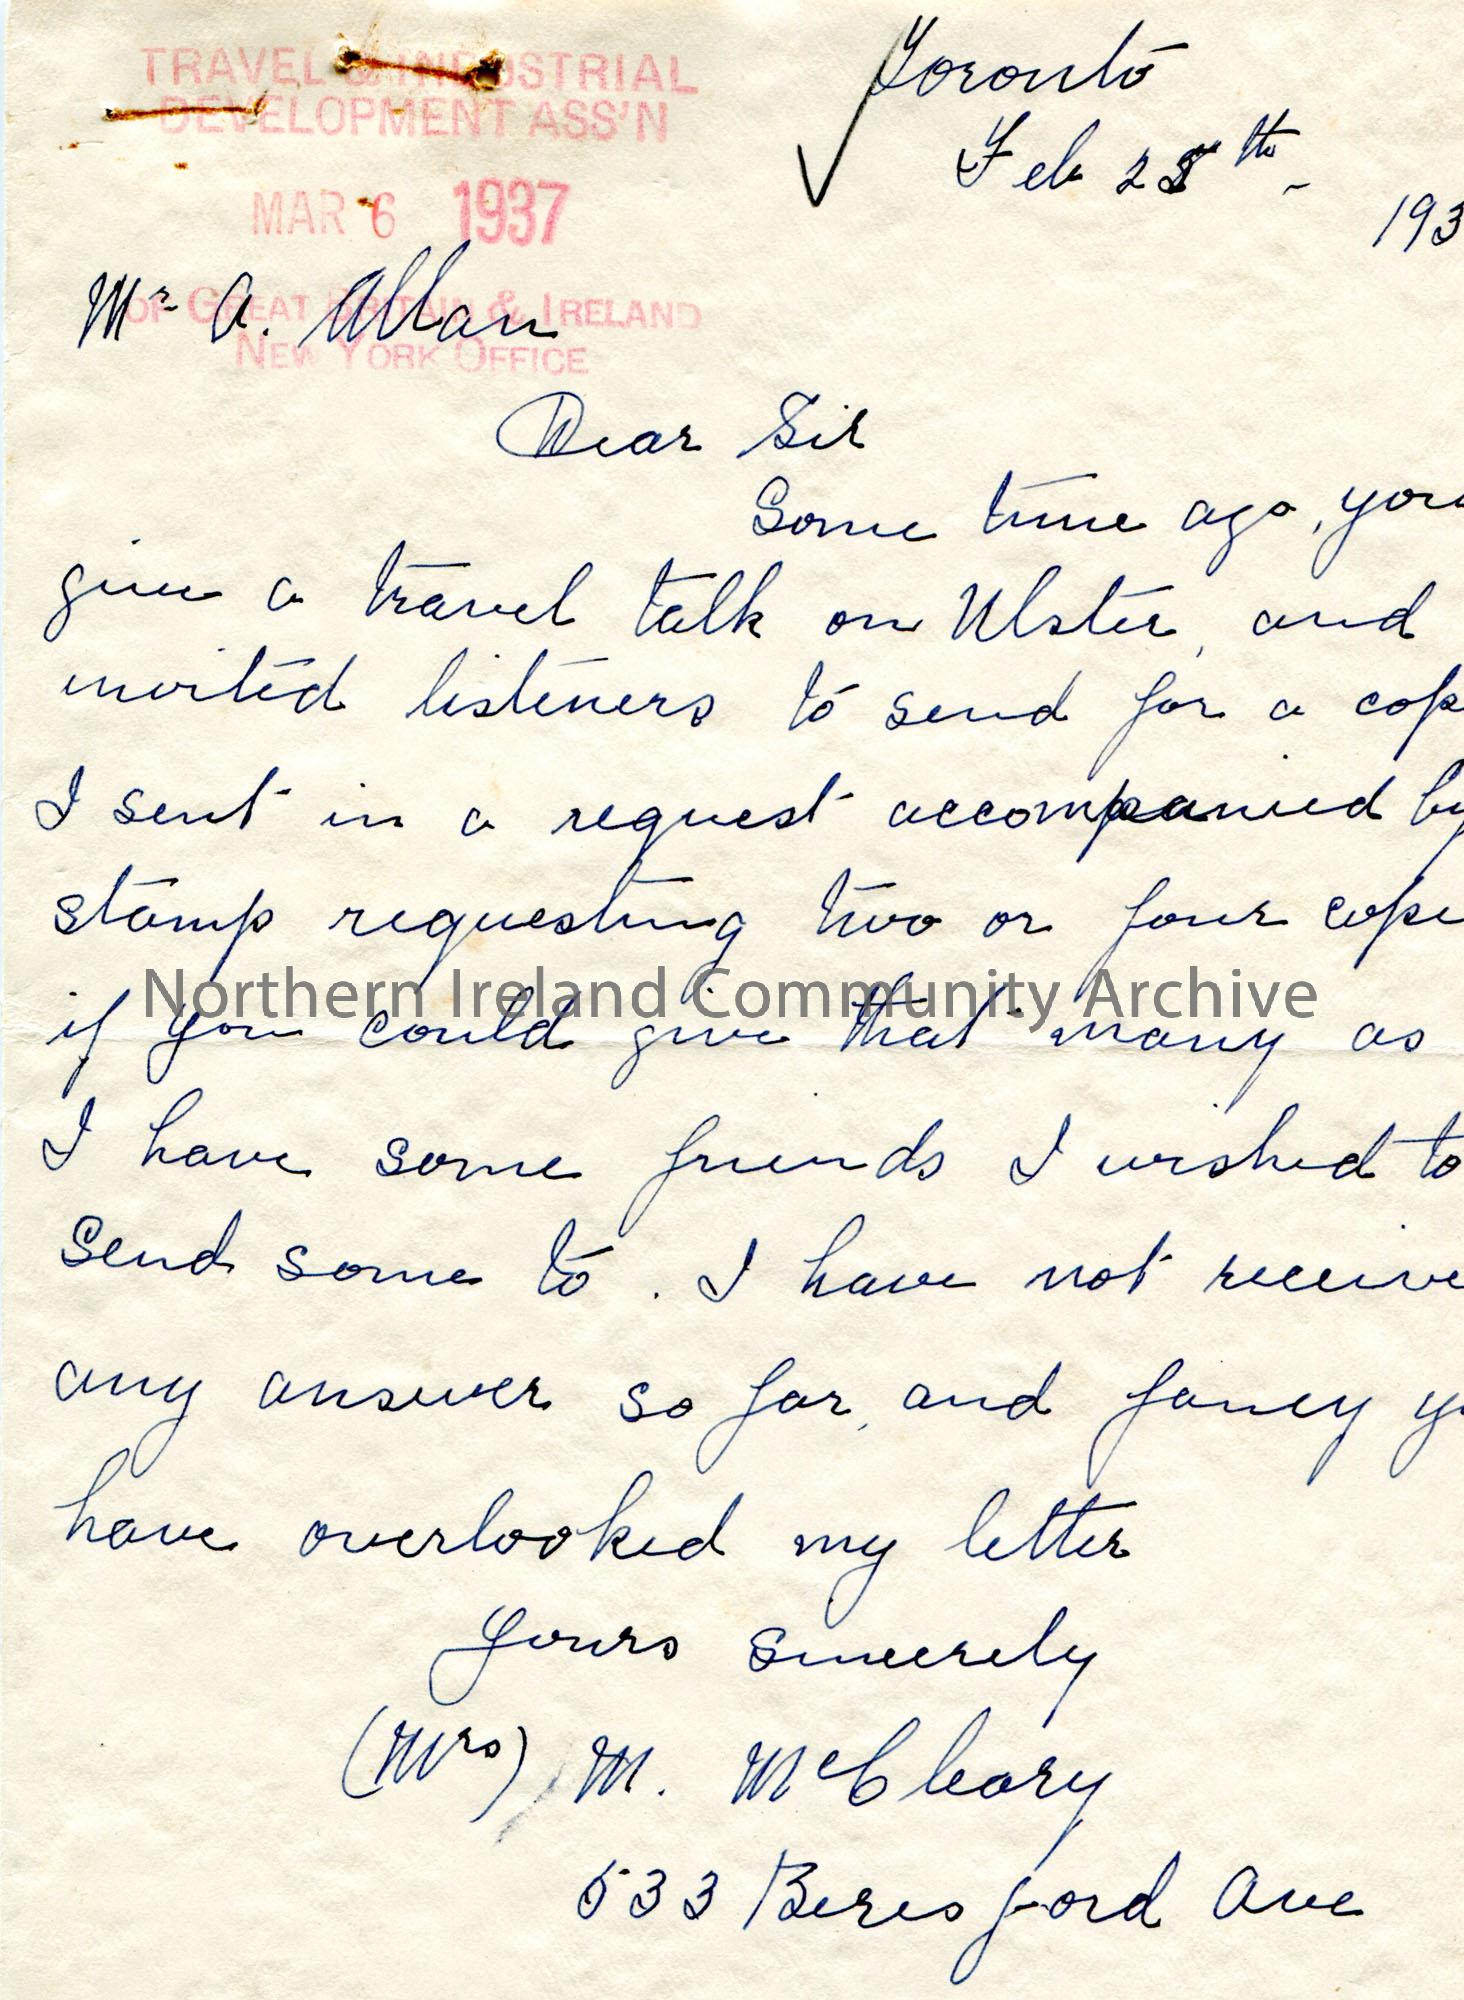 TRAVEL & INDUSTRIAL
DEVELOPMENT ASS'N
MAR 6 1937
OF GREAT BRITAIN & IRELAND
NEW YORK OFFICE
Toronto
Feb 28th
193
Mr A. Allan
Dear Sir
Some time ago, you
give a travel talk on Ulster, and
invited listeners to send for a cop
I sent in a request accompanied by
stamp requesting two or four copie
if you could give that many as
I have some friends I wished to
send some to. I have not receive
any answer so far, and fancy y
have overlooked my letter
Yours sincerely
(Mrs) M. McCleary
533 Beresford Ave
Northern Ireland Community Archive